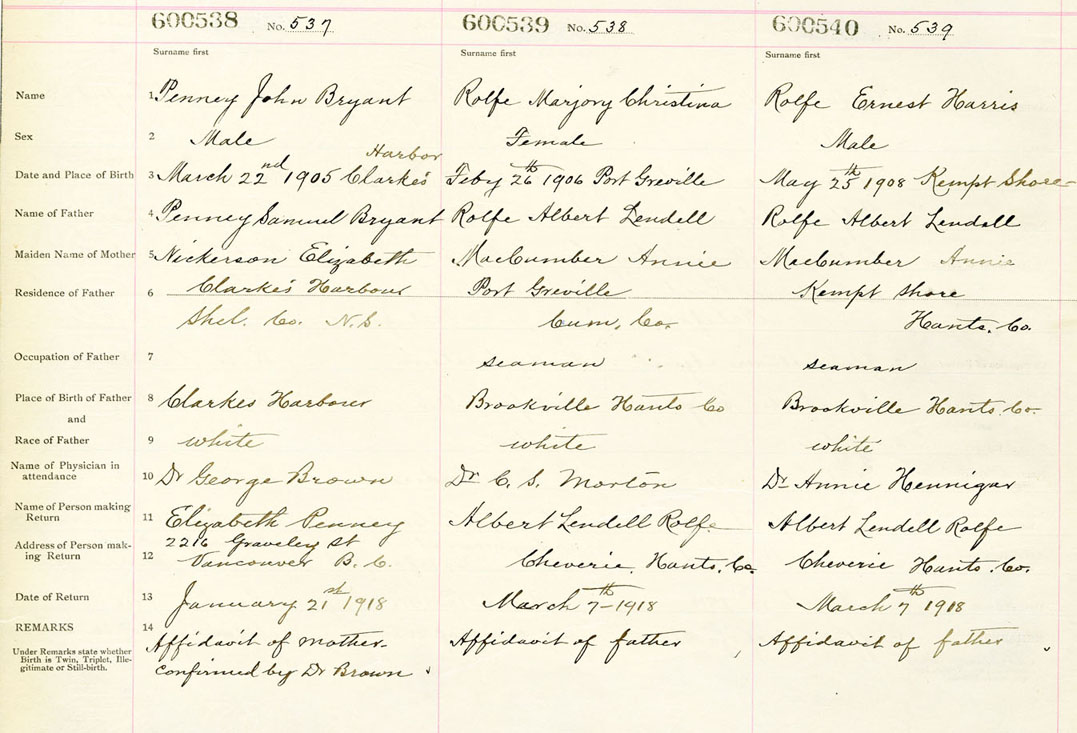 600538 No. 537 600539 No. 538 600540 No. 539
Surname first Surname first Surname first
Name 1 Penney John Bryant Rolfe Marjory Christina Rolfe Ernest Harris
Sex 2 Male Female Male
Harbor
Date and Place of Birth 3 March 22nd 1905 Clarke's Feby 26th 1906 Port Greville May 25th 1908 Kempt Shore
Name of Father 4 Penney Samuel Bryant Rolfe Albert Lendell Rolfe Albert Lendall
Maiden Name of Mother 5 Nickerson Elizabeth MacCumber Annie MacCumber Annie
Residence of Father 6 Clarke's Harbour Port Greville Kempt Shore
Shel. Co. N.S. Cum. Co. Hants. Co.
Occupation of Father 7 seaman seaman
Place of Birth of Father 8 Clarkes Harbour Brookville Hants Co Brookville Hants. Co.
and
Race of Father 9 white white white
Name of Physician in
attendance 10 Dr George Brown Dr C. S. Morton Dr Annie Hennigar
Name of Person making
Return 11 Elizabeth Penney Albert Lendell Rolfe Albert Lendell Rolfe
Address of Person mak- 2216 Graveley St
ing Return 12 Vancouver B. C. Cheverie, Hants. Co. Cheverie Hants. Co.
Date of Return 13 January 21st 1918 March 7th-1918 March 7th 1918
REMARKS 14 Affidavit of mother- Affidavit of father Affidavit of father
Under Remarks state whether
Birth is Twin, Triplet, Ille- confirmed by Dr Brown
gitimate or Still-birth.